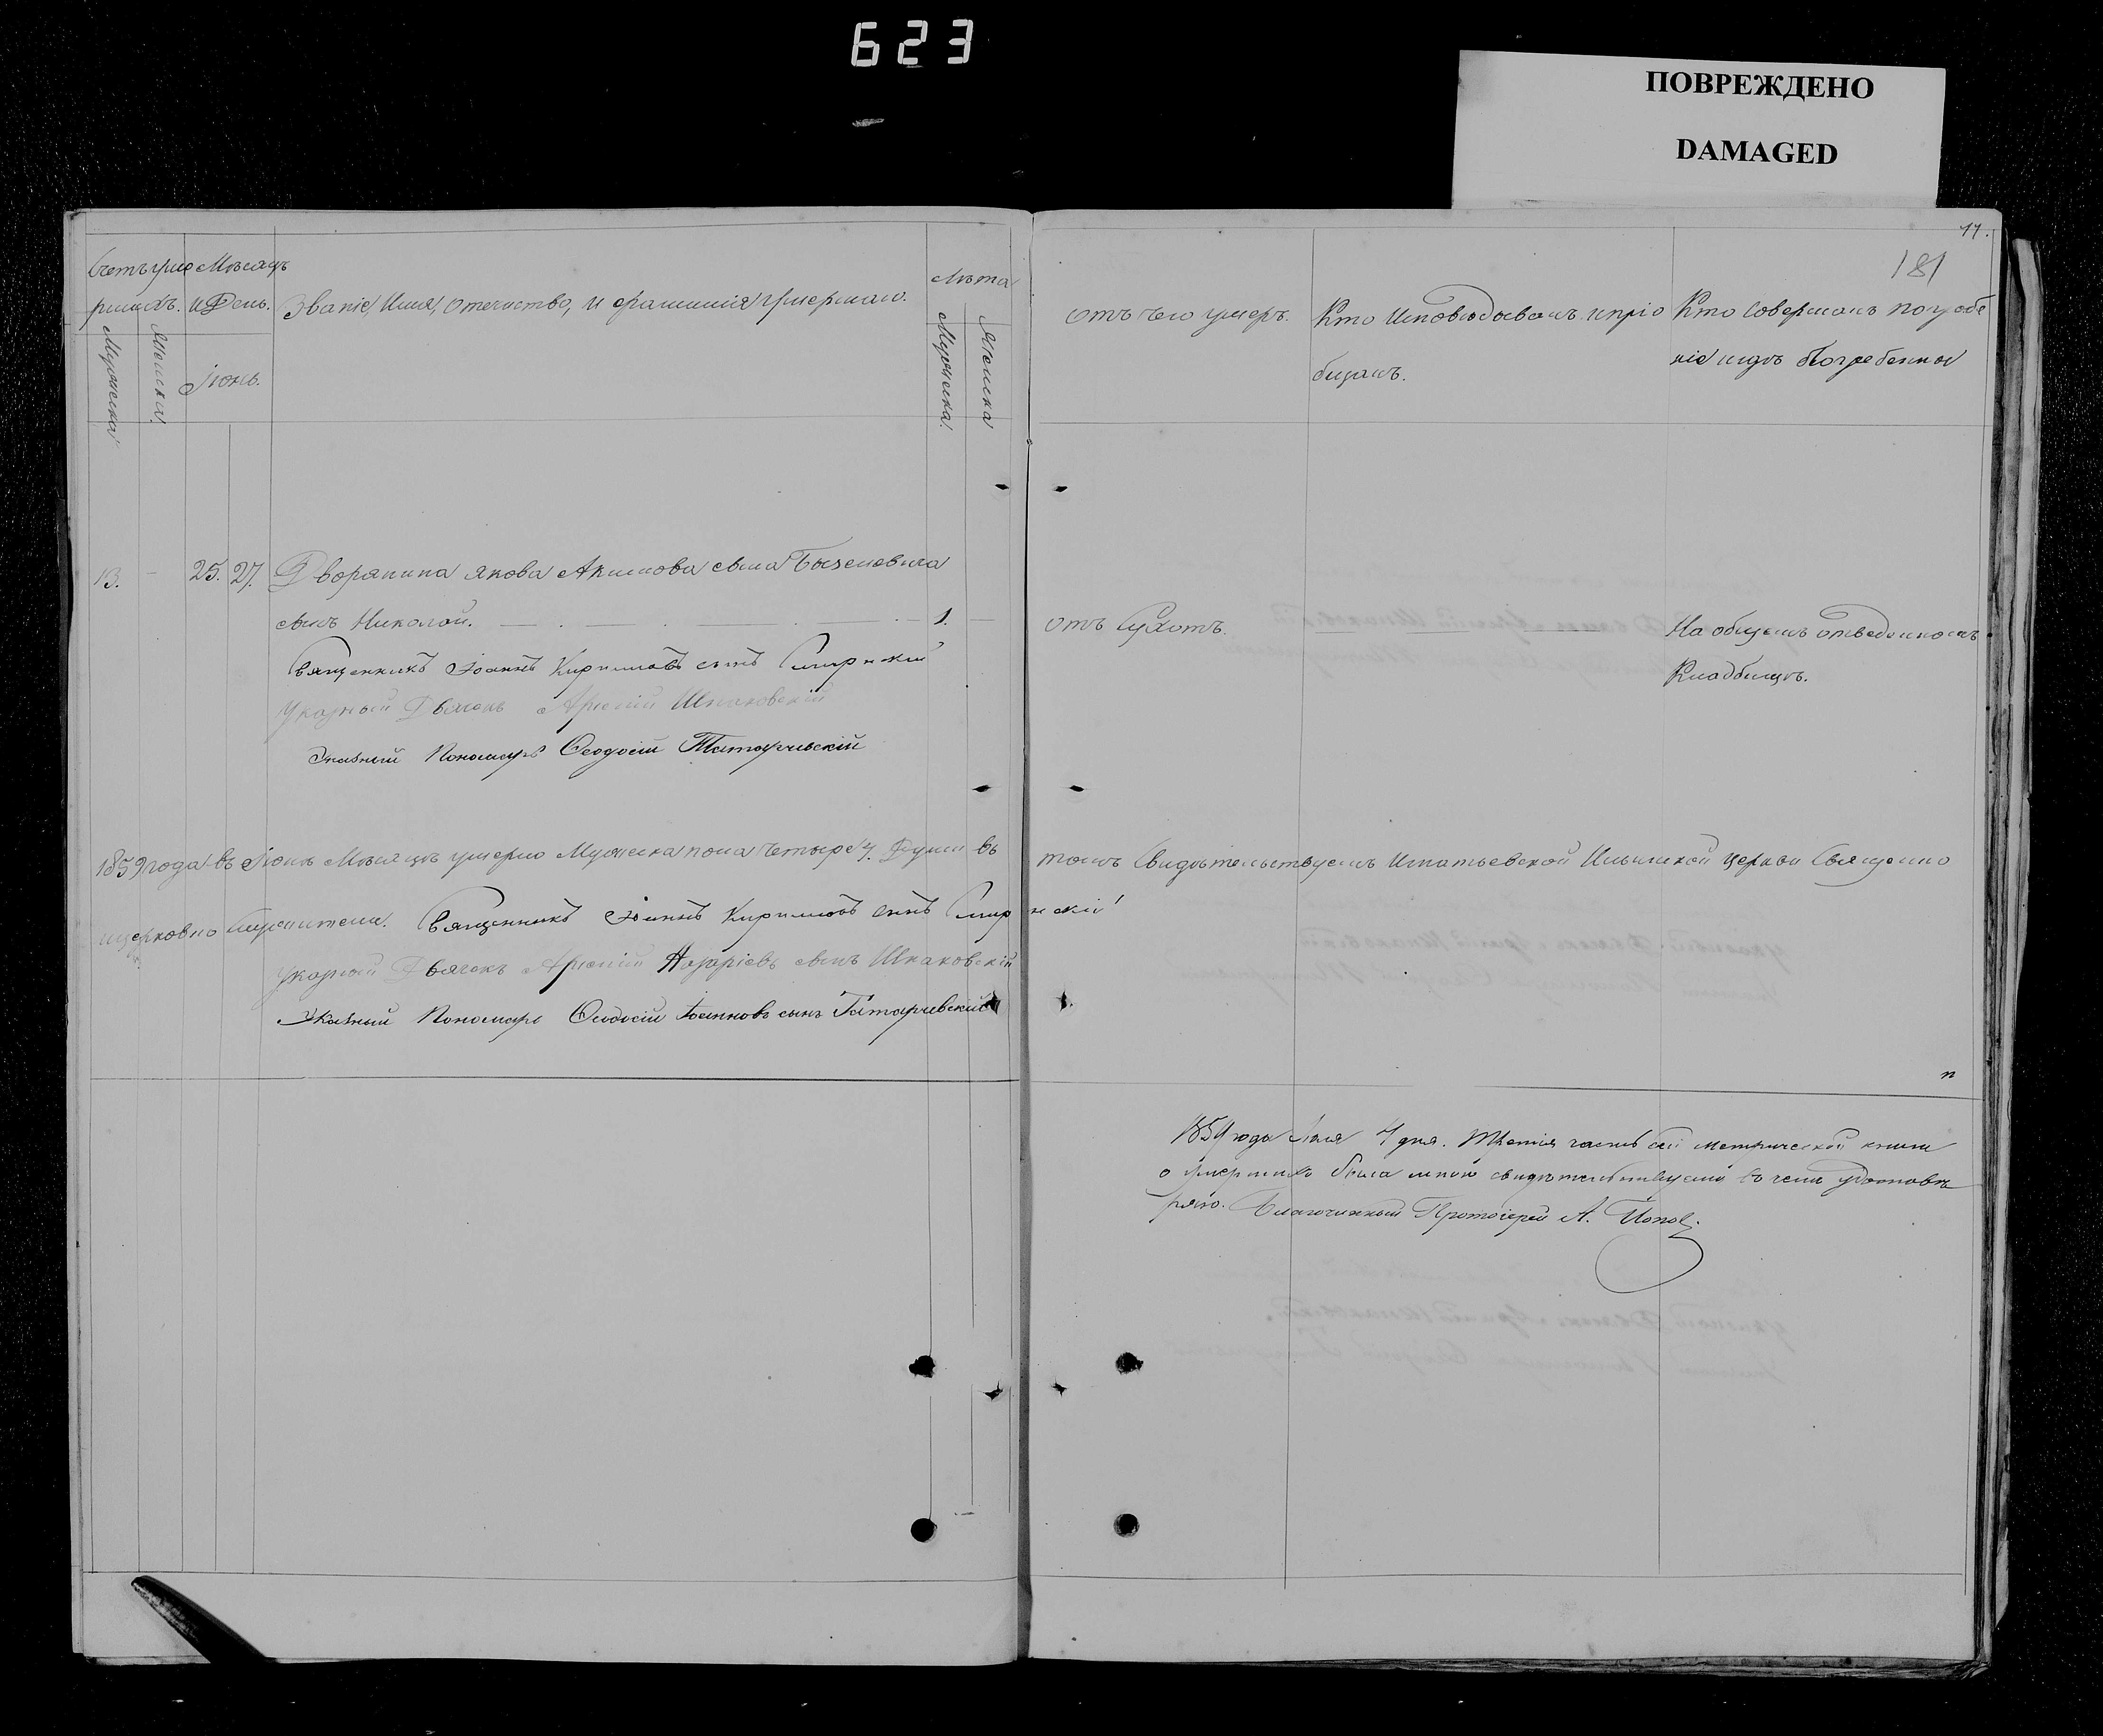 623
ПОВРЕЖДЕНО
DAMAGED
11.
181
Счетъ уме
ршихъ.
Мѣсяцъ
и День.
Званіе, Имя, отечество, и фамилія умершаго.
Лѣта
Мужеска
Женска
Іюнь.
Мужеска
Женска
отъ чего умеръ.
Кто Исповѣдовалъ и пріо
бщалъ.
Кто совершалъ погребе
ніе и гдѣ Погребенны
13. 25. 27. Дворянина Якова Акимова сына
сынъ Николай. 1.
отъ Сухотъ.
На общемъ отведенномъ
Кладбищѣ.
Священникъ Іоаннъ Кирилловъ сынъ
Указный Дьячокъ Арсеній Шпаковскій
Указный Пономарь Ѳеодосій Татарчевскій
1859 года въ Іюнѣ Мѣсяцѣ умерло Мужеска пола четыре 4. Души въ томъ Свидѣтельствуемъ Игнатьевской Ильинской церкви Священно
ицерковно служители. Священникъ Іоаннъ Кирилловъ сынъ
Указный Дьячокъ Арсеній Назаріевъ сынъ Шпаковскій
Указный Пономарь Ѳеодосій Іоанновъ сынъ Татарчевскій
1859 года Іюля 7 дня. Третія часть сей метрической книги
о умершихъ была мною свидѣтельствуема въ чемъ удостовѣ
ряю. Благочинный Протоіерей А. Поповъ.